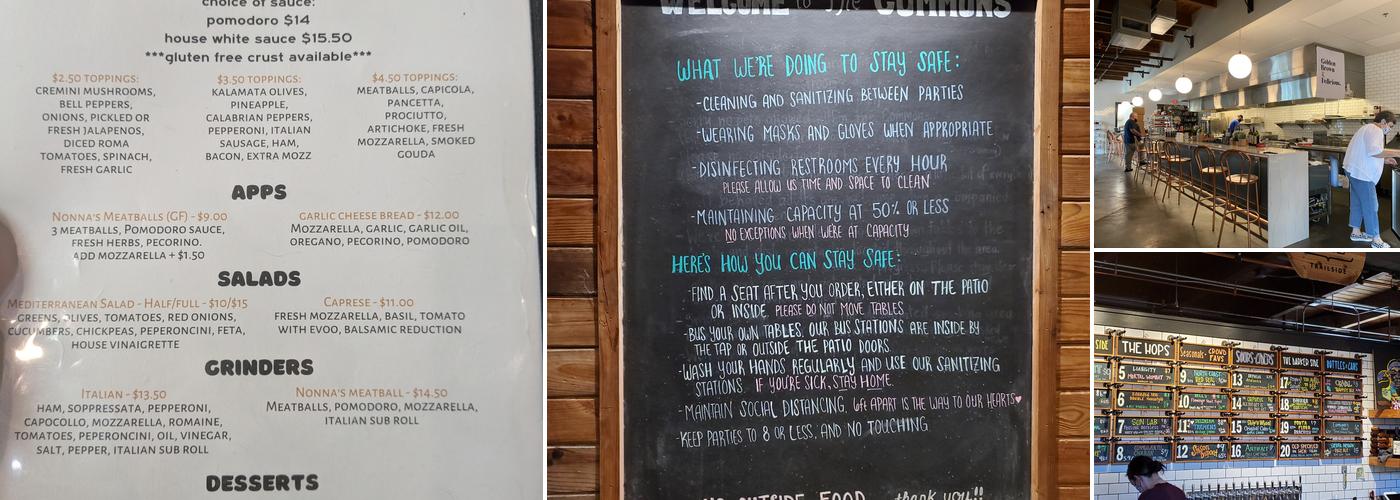 choice of sauce:
pomodoro $14
house white sauce $15.50
***gluten free crust available***
$2.50 TOPPINGS:
CREMINI MUSHROOMS,
BELL PEPPERS,
ONIONS, PICKLED OR
FRESH JALAPENOS,
DICED ROMA
TOMATOES, SPINACH,
FRESH GARLIC
$3.50 TOPPINGS:
KALAMATA OLIVES,
PINEAPPLE,
CALABRIAN PEPPERS,
PEPPERONI, ITALIAN
SAUSAGE, HAM,
BACON, EXTRA MOZZ
$4.50 TOPPINGS:
MEATBALLS, CAPICOLA,
PANCETTA,
PROCIUTTO,
ARTICHOKE, FRESH
MOZZARELLA, SMOKED
GOUDA
APPS
NONNA'S MEATBALLS (GF) - $9.00
3 MEATBALLS, POMODORO SAUCE,
FRESH HERBS, PECORINO.
ADD MOZZARELLA + $1.50
GARLIC CHEESE BREAD - $12.00
MOZZARELLA, GARLIC, GARLIC OIL,
OREGANO, PECORINO, POMODORO
SALADS
MEDITERRANEAN SALAD - HALF/FULL - $10/$15
GREENS, OLIVES, TOMATOES, RED ONIONS,
CUCUMBERS, CHICKPEAS, PEPERONCINI, FETA,
HOUSE VINAIGRETTE
CAPRESE - $11.00
FRESH MOZZARELLA, BASIL, TOMATO
WITH EVOO, BALSAMIC REDUCTION
GRINDERS
ITALIAN - $13.50
HAM, SOPPRESSATA, PEPPERONI,
CAPOCOLLO, MOZZARELLA, ROMAINE,
TOMATOES, PEPERONCINI, OIL, VINEGAR,
SALT, PEPPER, ITALIAN SUB ROLL
NONNA'S MEATBALL - $14.50
MEATBALLS, POMODORO, MOZZARELLA,
ITALIAN SUB ROLL
DESSERTS
WELCOME to The COMMONS
WHAT WE'RE DOING TO STAY SAFE:
-CLEANING AND SANITIZING BETWEEN PARTIES
-WEARING MASKS AND GLOVES WHEN APPROPRIATE
-DISINFECTING RESTROOMS EVERY HOUR
PLEASE ALLOW US TIME AND SPACE TO CLEAN
-MAINTAINING CAPACITY AT 50% OR LESS
NO EXCEPTIONS WHEN WE'RE AT CAPACITY
HERE'S HOW YOU CAN STAY SAFE:
-FIND A SEAT AFTER YOU ORDER, EITHER ON THE PATIO
OR INSIDE. PLEASE DO NOT MOVE TABLES
-BUS YOUR OWN TABLES, OUR BUS STATIONS ARE INSIDE BY
THE TAP OR OUTSIDE THE PATIO DOORS
-WASH YOUR HANDS REGULARLY AND USE OUR SANITIZING
STATIONS. IF YOU'RE SICK, STAY HOME.
-MAINTAIN SOCIAL DISTANCING, 6ft APART IS THE WAY TO OUR HEARTS♥
-KEEP PARTIES TO 8 OR LESS, AND NO TOUCHING
NO OUTSIDE FOOD thank you!!
Golden
Brown
&
Delicious.
TRAILSIDE
SIDE
THE HOPS
Seasonals + CROWD FAVS
SOURS + CIDERS
THE DARKER SIDE
BOTTLES + CANS
5
6
7 SUN LAB
8
9 NORTH COAST
RED SEAL
10
11
12
13
14
15
16
17
18
19
20